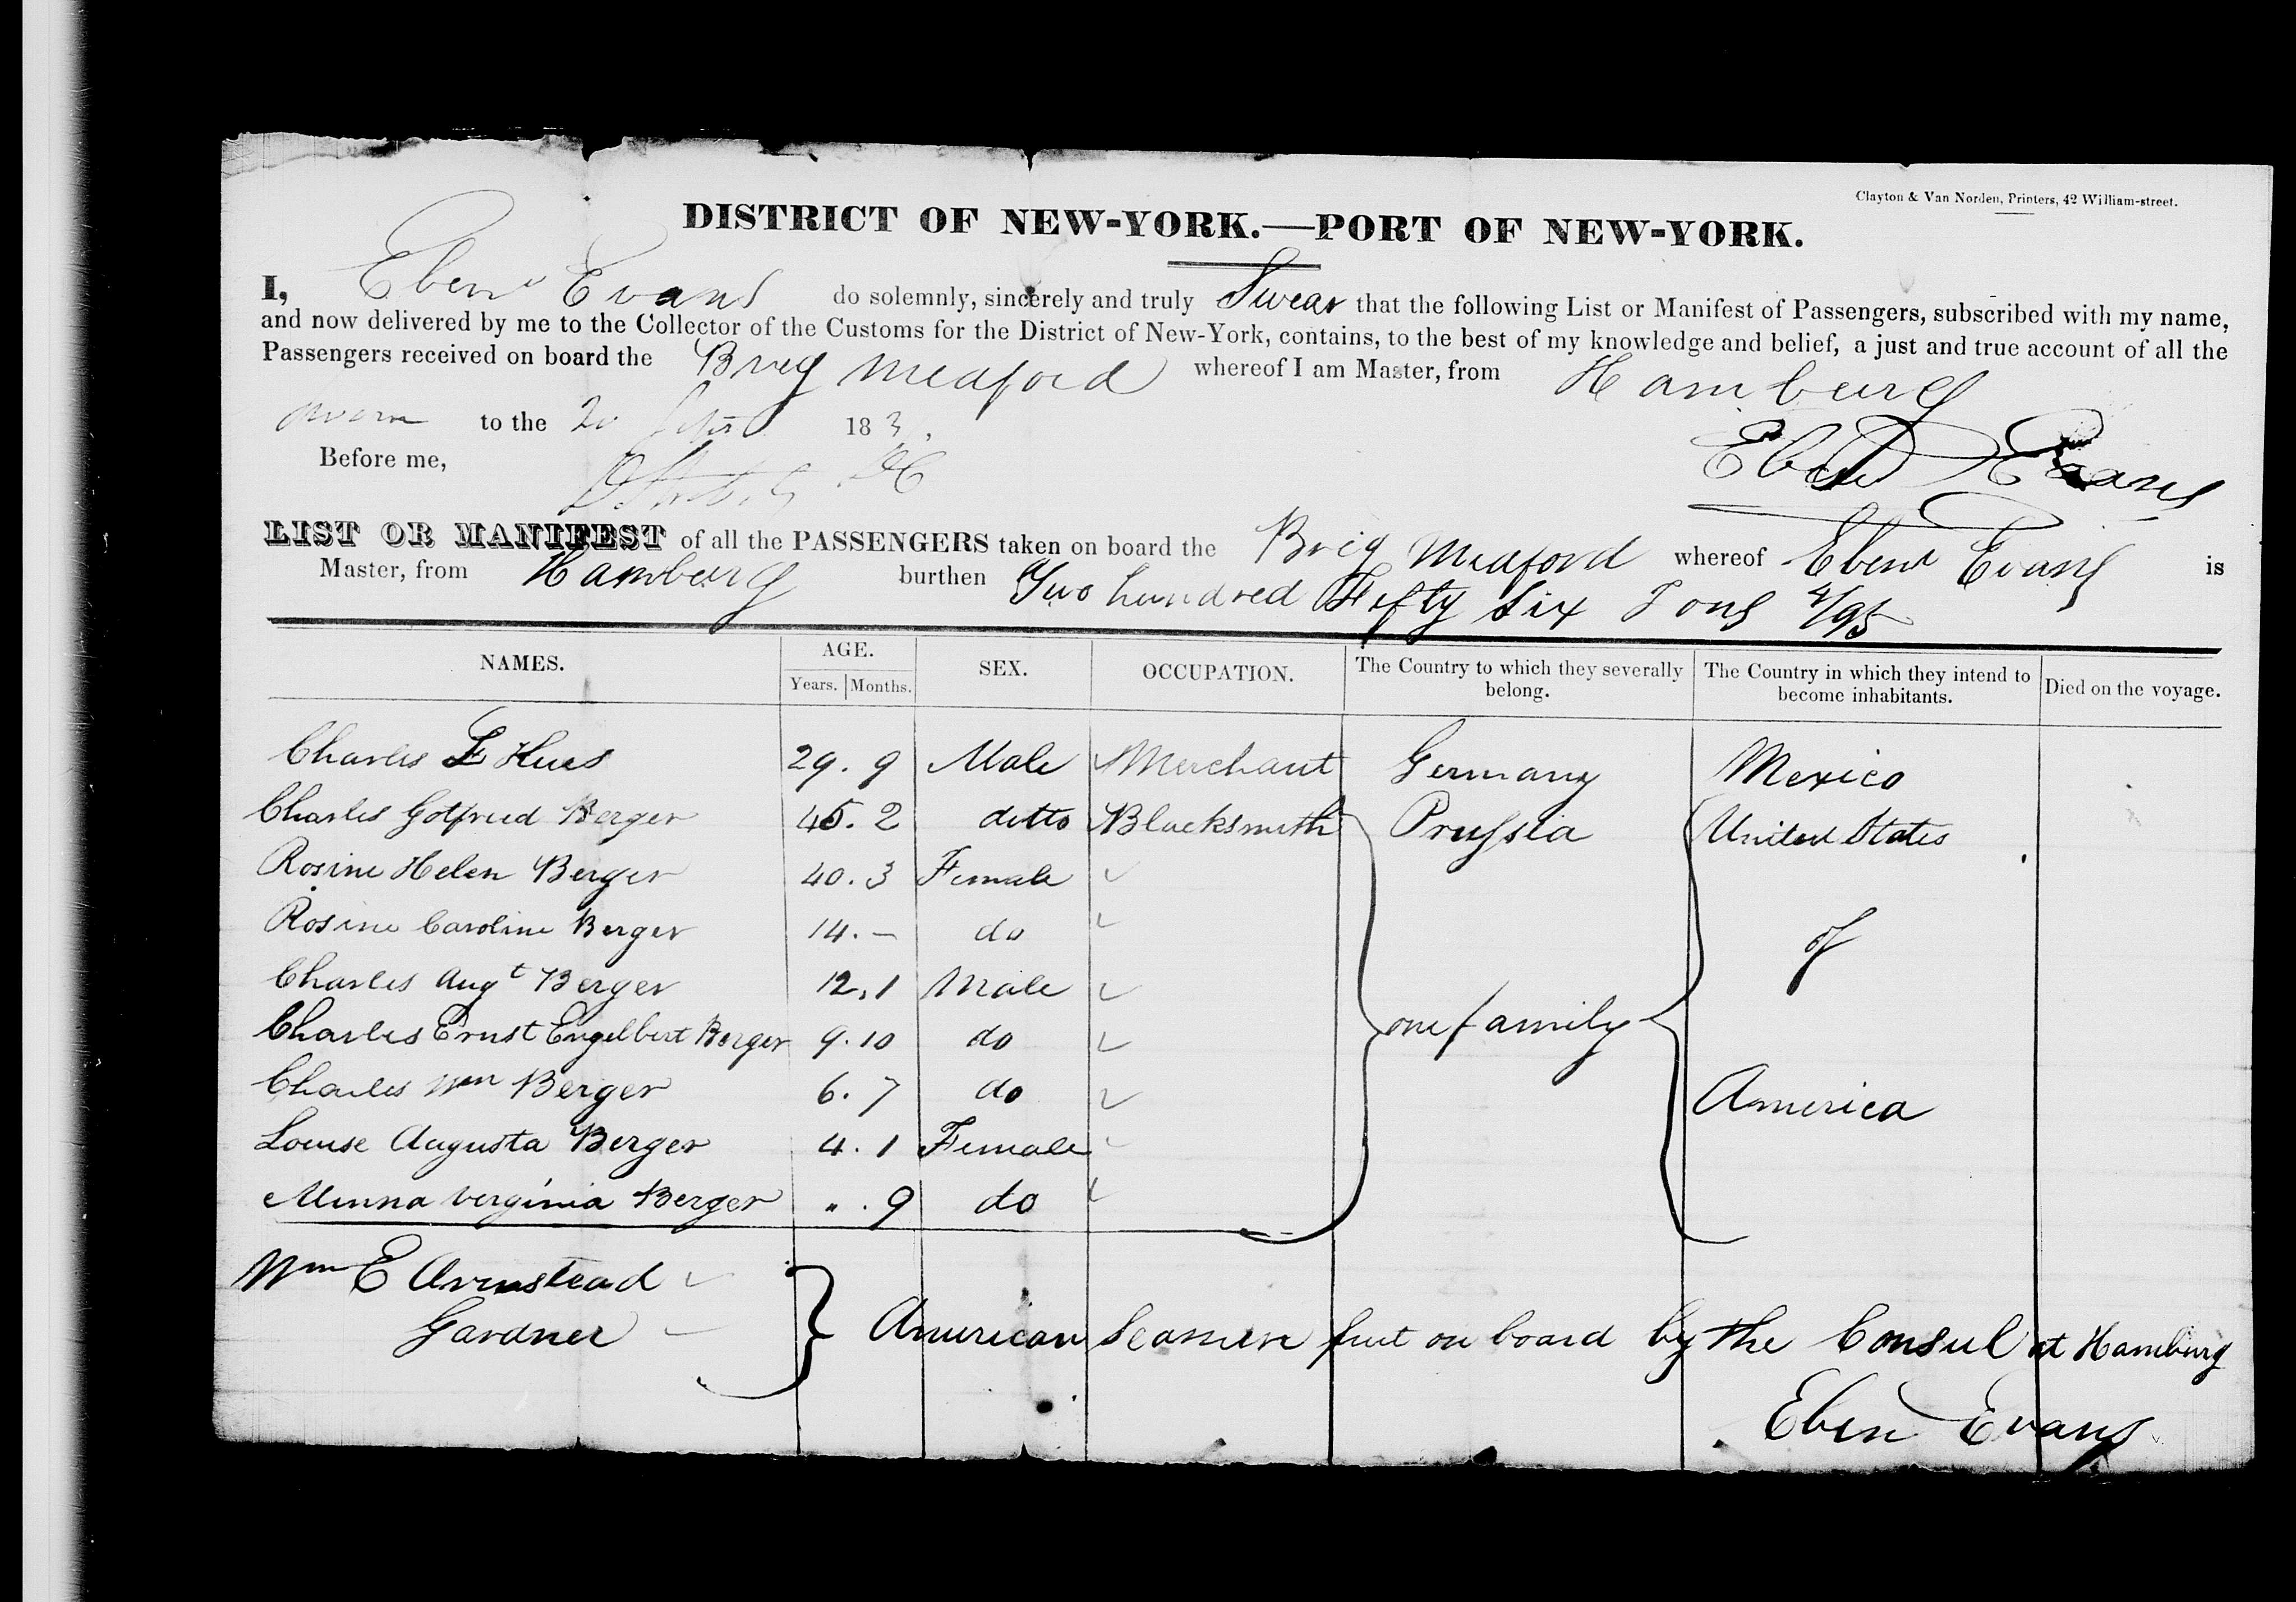 Clayton & Van Norden, Printers, 42 William-street.
DISTRICT OF NEW-YORK.—PORT OF NEW-YORK.
I, Ebenr Evans do solemnly, sincerely and truly Swear that the following List or Manifest of Passengers, subscribed with my name,
and now delivered by me to the Collector of the Customs for the District of New-York, contains, to the best of my knowledge and belief, a just and true account of all the
Passengers received on board the Brig Medford whereof I am Master, from Hamburg
Sworn to the 20 183
Before me,
Eben Evans
LIST OR MANIFEST of all the PASSENGERS taken on board the Brig Medford whereof Ebenr Evans is
Master, from Hamburg burthen Two hundred Fifty Six Tons 4/95
NAMES. AGE. Years. Months. SEX. OCCUPATION. The Country to which they severally belong. The Country in which they intend to become inhabitants. Died on the voyage.
Charles F Hues 29. 9 Male Merchant Germany Mexico
Charles Gotfried Berger 45. 2 ditto Blacksmith Prussia United States
Rosine Helen Berger 40. 3 Female
Rosine Caroline Berger 14. — do of
Charles Augt Berger 12. 1 Male
Charles Ernst Engelbert Berger 9. 10 do one family
Charles Wm Berger 6. 7 do America
Louise Augusta Berger 4. 1 Female
Minna Verginia Berger " . 9 do
Wm E Armstead
Gardner American Seamen put on board by the Consul at Hamburg
Eben Evans